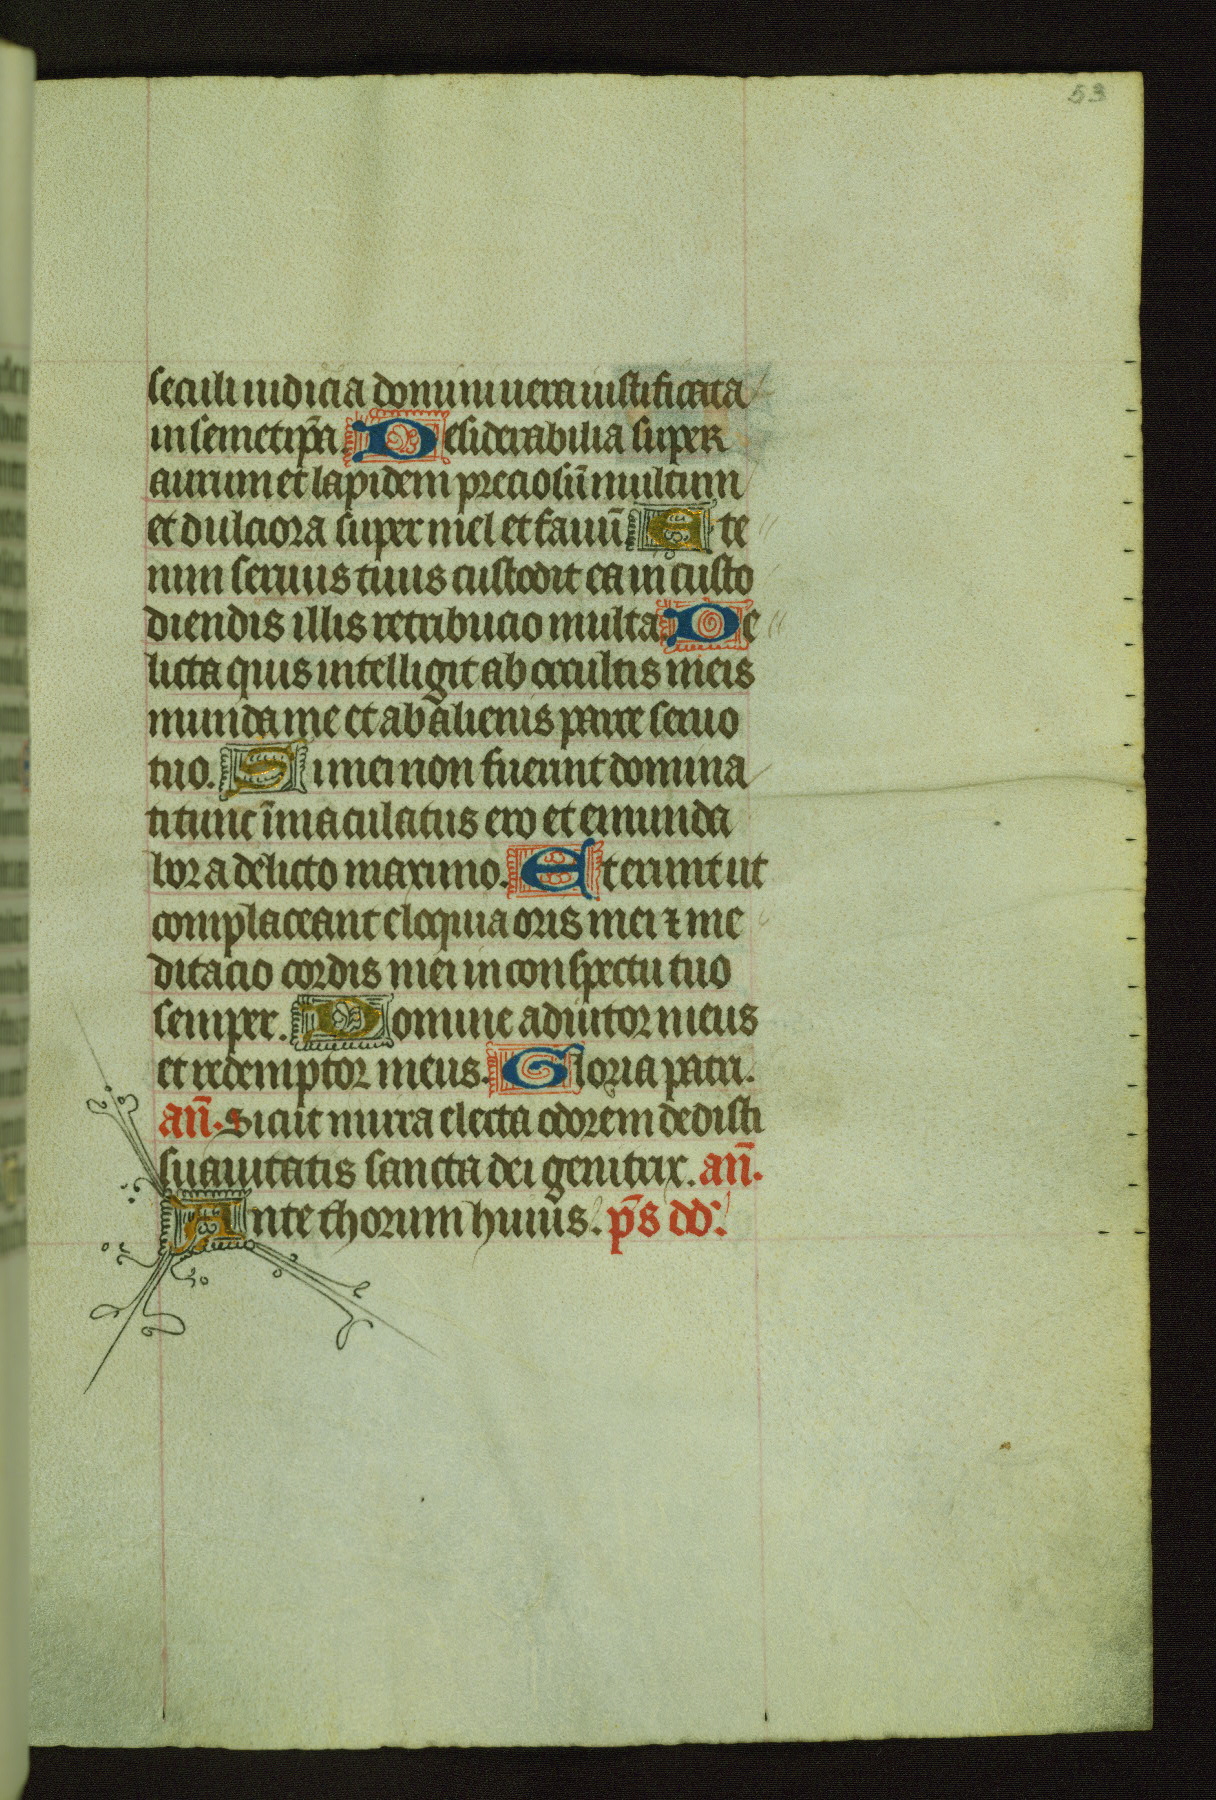 53
seculi iudicia domini uera iustificata
in semetip̄a. Desiderabilia super
aurum et lapidem preciosū multum
et dulciora super mel et fauū Ete
nim seruus tuus custodit ea in custo
diendis illis retribucio multa De
licta quis intelligit ab occultis meis
munda me et ab alienis parce seruo
tuo. Si mei non fuerint domina
ti tunc īmaculatus ero et emunda
bor a delicto maximo. Et erunt ut
complaceant eloquia oris mei ⁊ me
ditacio cordis mei in conspectu tuo
semper. Domine adiutor meus
et redemptor meus. Gloria patri.
an̄. Sicut mirra electa odorem dedisti
suauitatis sancta dei genitrix. an̄.
Ante thorum huius. p̄s dd.